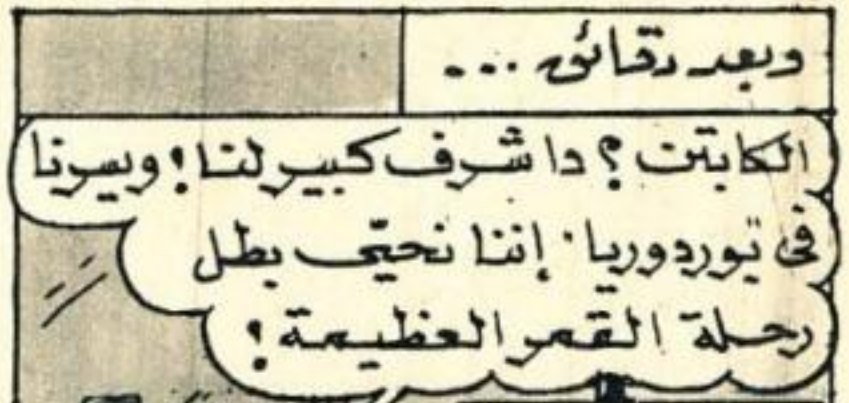 وبعد دقائق ...
الكابتن ؟ دا شرف كبير لنا ! ويسرنا
فى بوردوريا . إننا نحيّى بطل
رحلة القمر العظيمة !